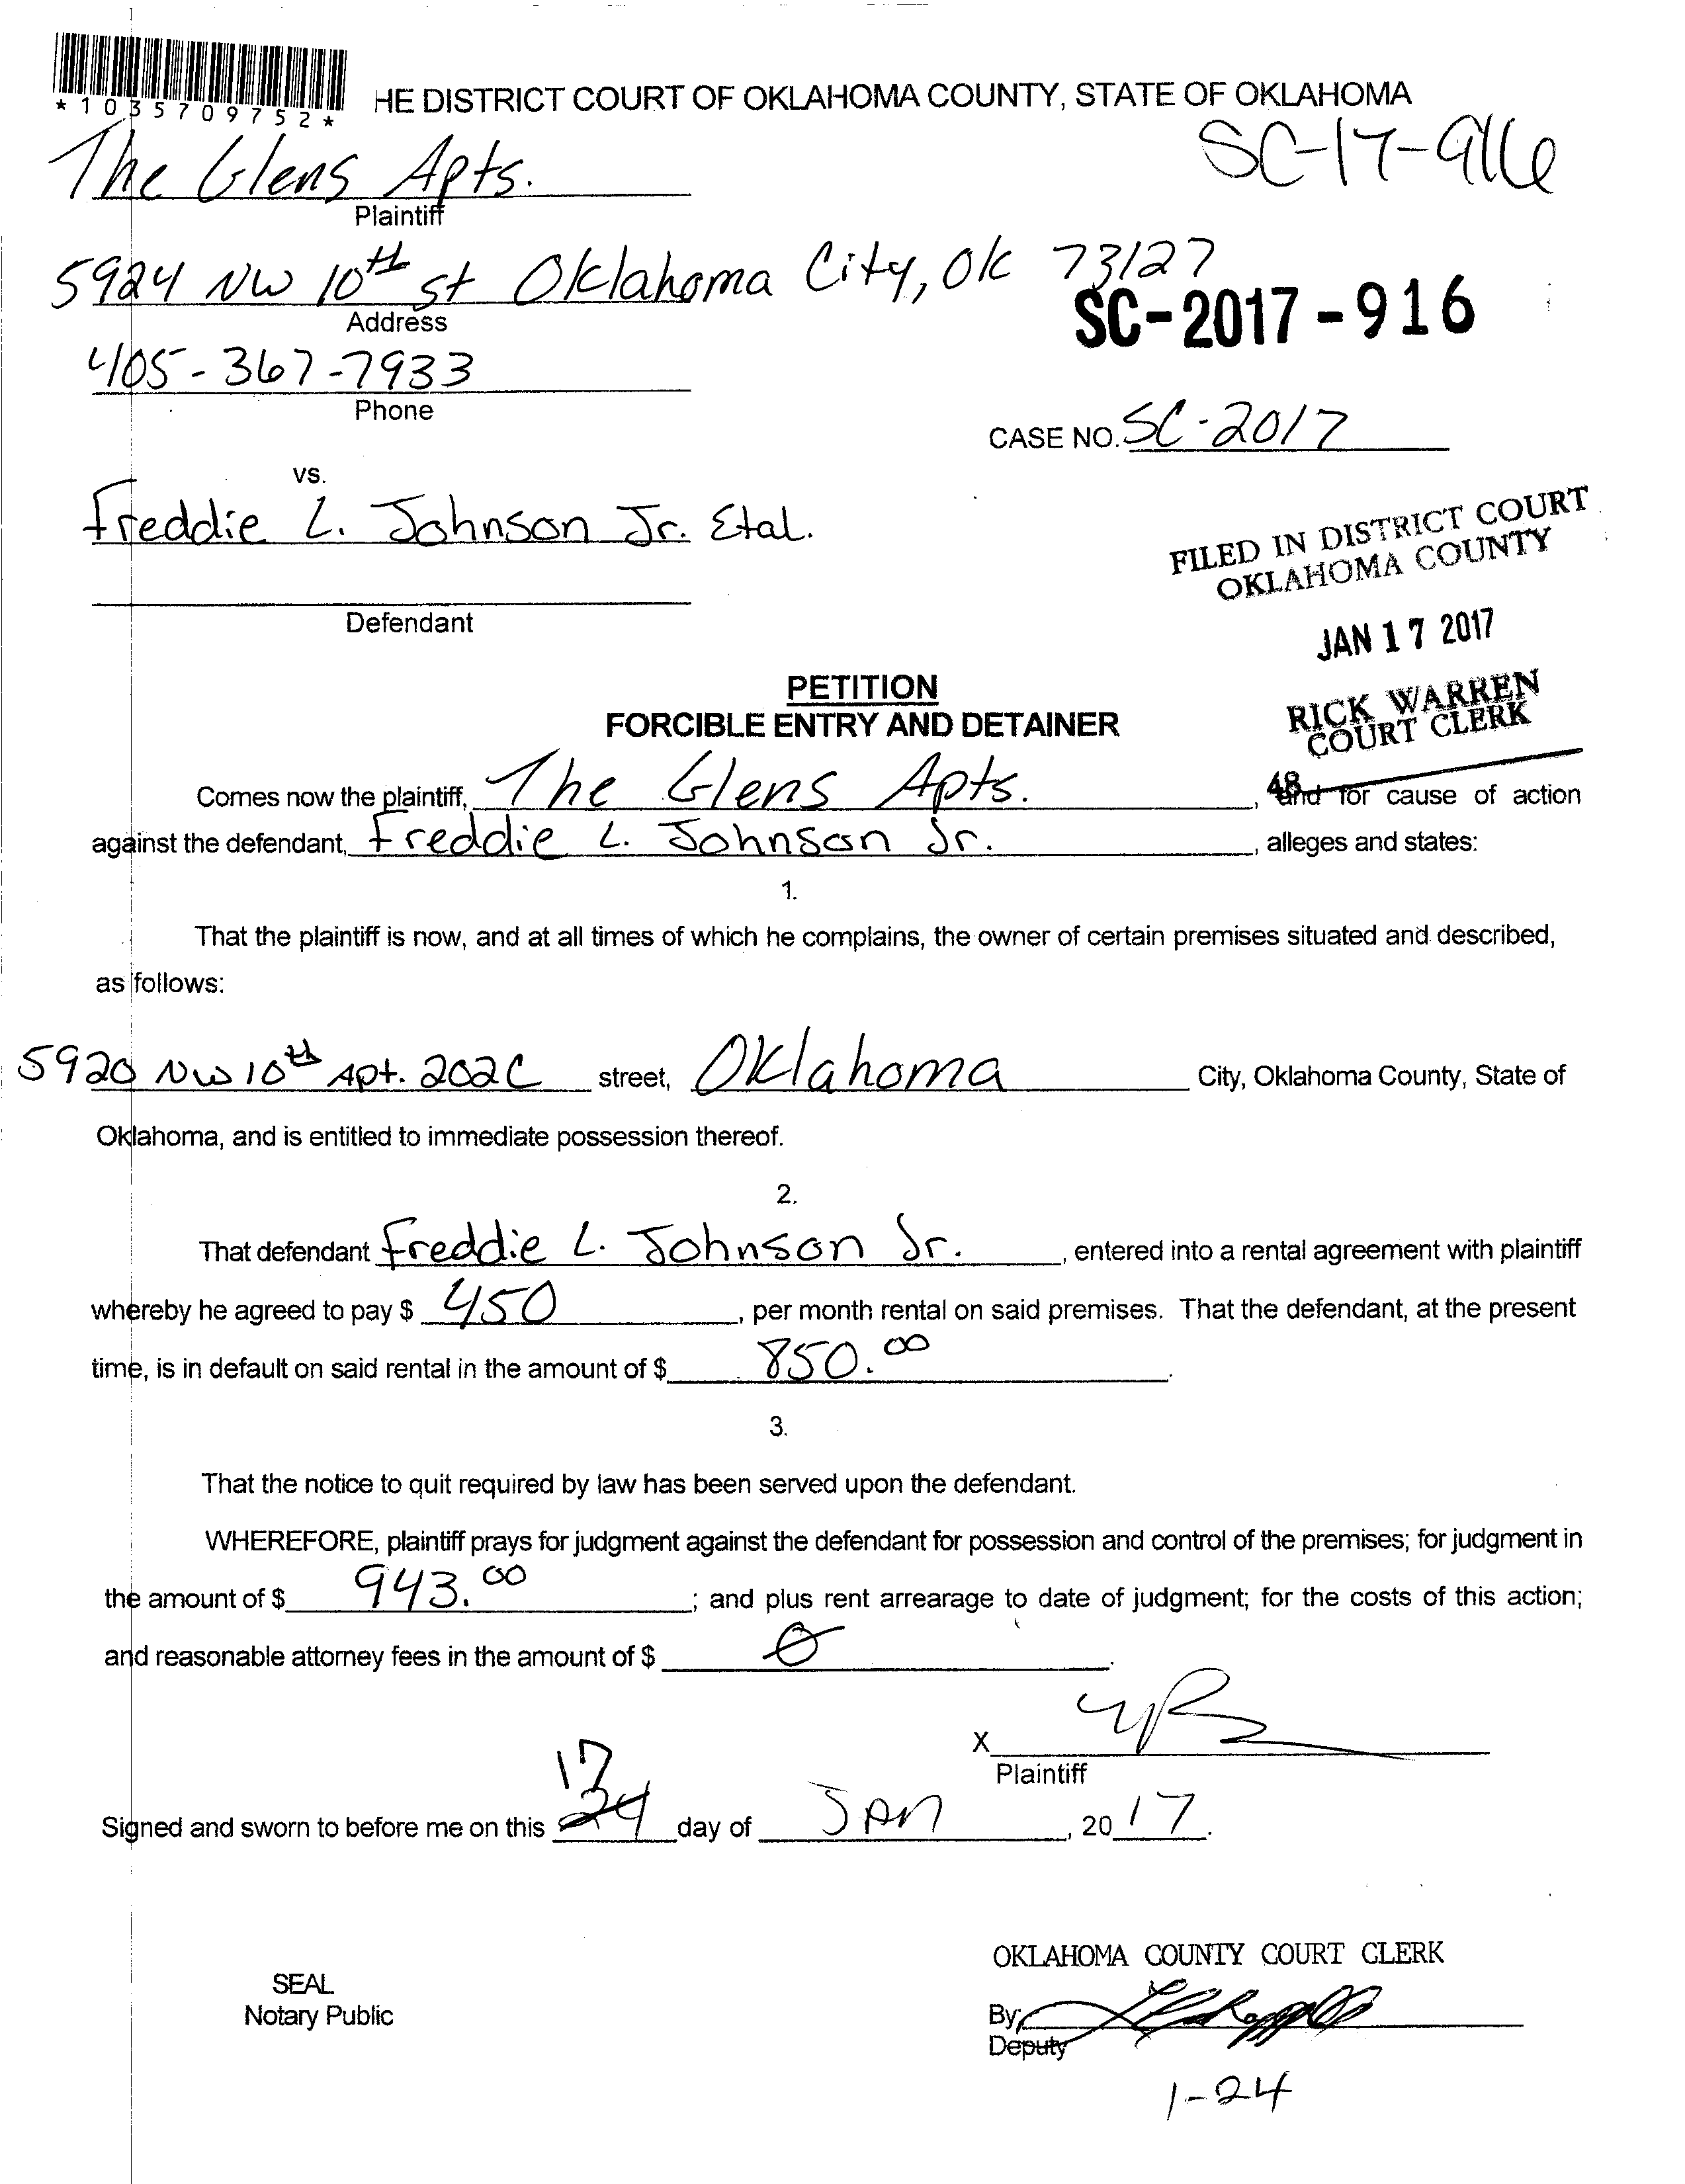 *1035709752*
HE DISTRICT COURT OF OKLAHOMA COUNTY, STATE OF OKLAHOMA
SC-17-916
The Glens Apts.
Plaintiff
5924 NW 10th st Oklahoma City, OK 73127
Address
SC-2017-916
405-367-7933
Phone
CASE NO. SC-2017
vs.
Freddie L. Johnson Jr. Etal.
Defendant
FILED IN DISTRICT COURT
OKLAHOMA COUNTY
JAN 17 2017
RICK WARREN
COURT CLERK
48
PETITION
FORCIBLE ENTRY AND DETAINER
Comes now the plaintiff, The Glens Apts., and for cause of action
against the defendant, Freddie L. Johnson Jr., alleges and states:
1.
That the plaintiff is now, and at all times of which he complains, the owner of certain premises situated and described,
as follows:
5920 NW 10th Apt. 202C street, Oklahoma City, Oklahoma County, State of
Oklahoma, and is entitled to immediate possession thereof.
2.
That defendant Freddie L. Johnson Jr., entered into a rental agreement with plaintiff
whereby he agreed to pay $ 450, per month rental on said premises. That the defendant, at the present
time, is in default on said rental in the amount of $ 850.00.
3.
That the notice to quit required by law has been served upon the defendant.
WHEREFORE, plaintiff prays for judgment against the defendant for possession and control of the premises; for judgment in
the amount of $ 943.00; and plus rent arrearage to date of judgment; for the costs of this action;
and reasonable attorney fees in the amount of $ 0.
X
Plaintiff
17
Signed and sworn to before me on this 24 day of JAN, 2017.
OKLAHOMA COUNTY COURT CLERK
SEAL
Notary Public
By:
Deputy
1-24